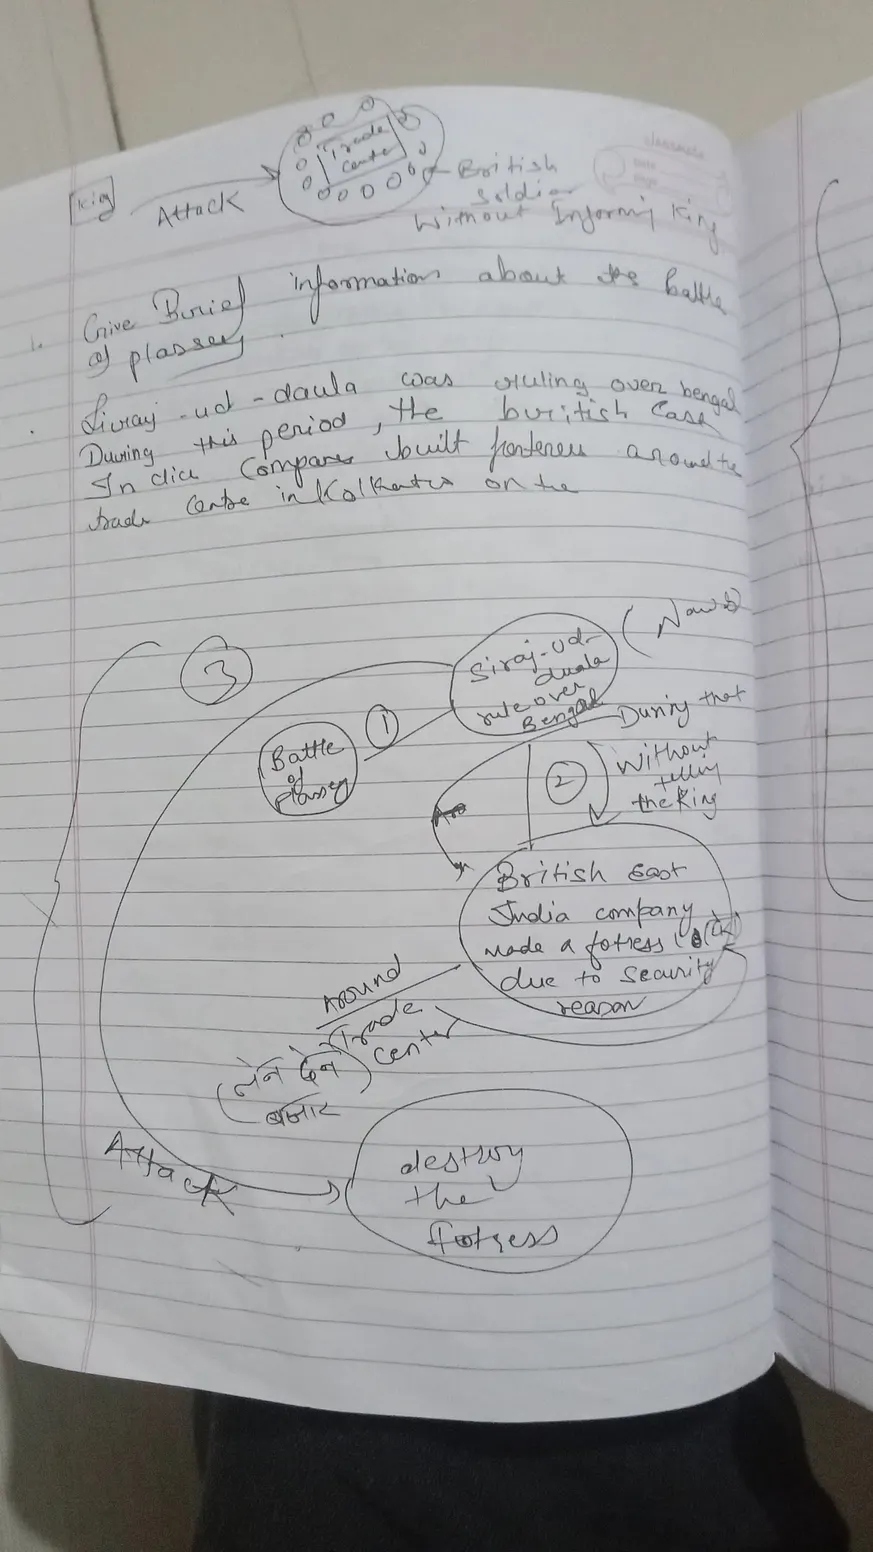 Trade
Center
King
Attack
British
Soldier
Without Informing King
1. Give Burief information about the battle
of plassey.
Siraj-ud-daula was ruling over bengal
During this period, the british East
India Company built forteress around the
trade centre in Kolkata on the
3
Siraj-ud-
duala
rule over
Bengal
(Nawab
1
Battle
of
Plassey
During that
2
Without
telling
the King
British East
India company
made a fotress
due to security
reason
Around
Trade
center
(लेन देन)
बजार
Attack
destroy
the
fotress